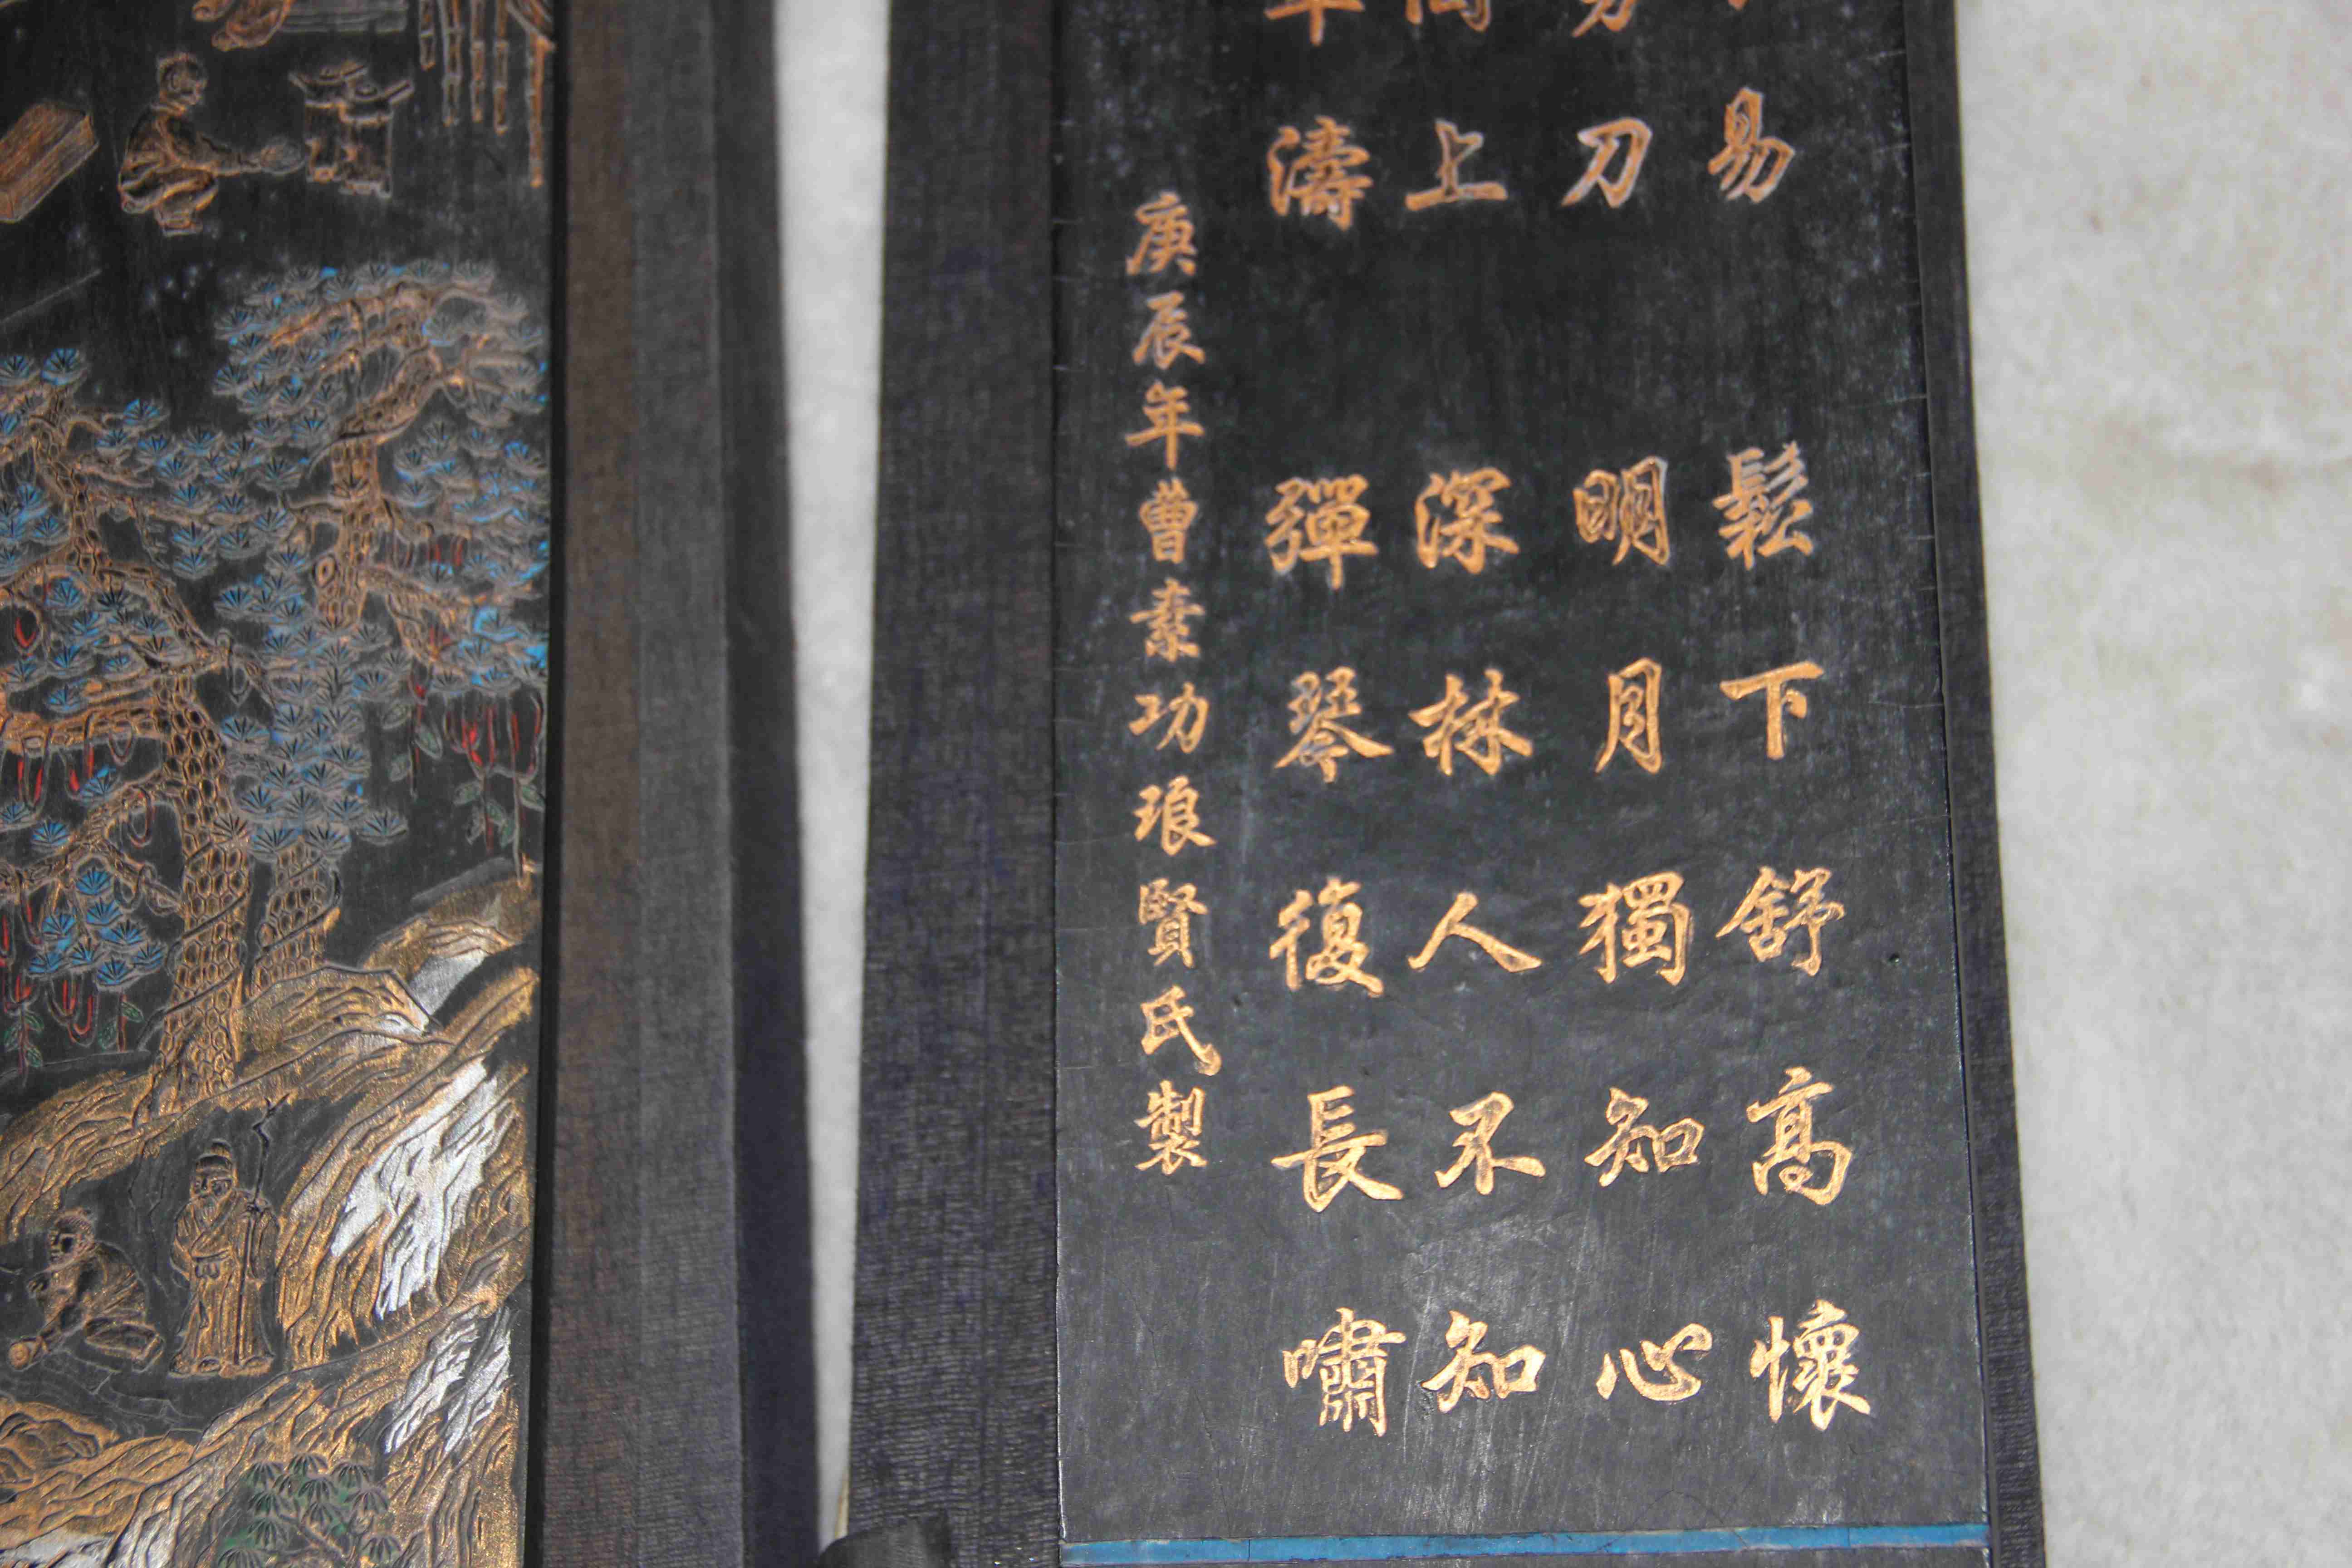 易 鬆下舒高懷
刀 明月獨知心
上 深林人不知
濤 彈琴復長嘯
庚辰年曹素功琅賢氏製